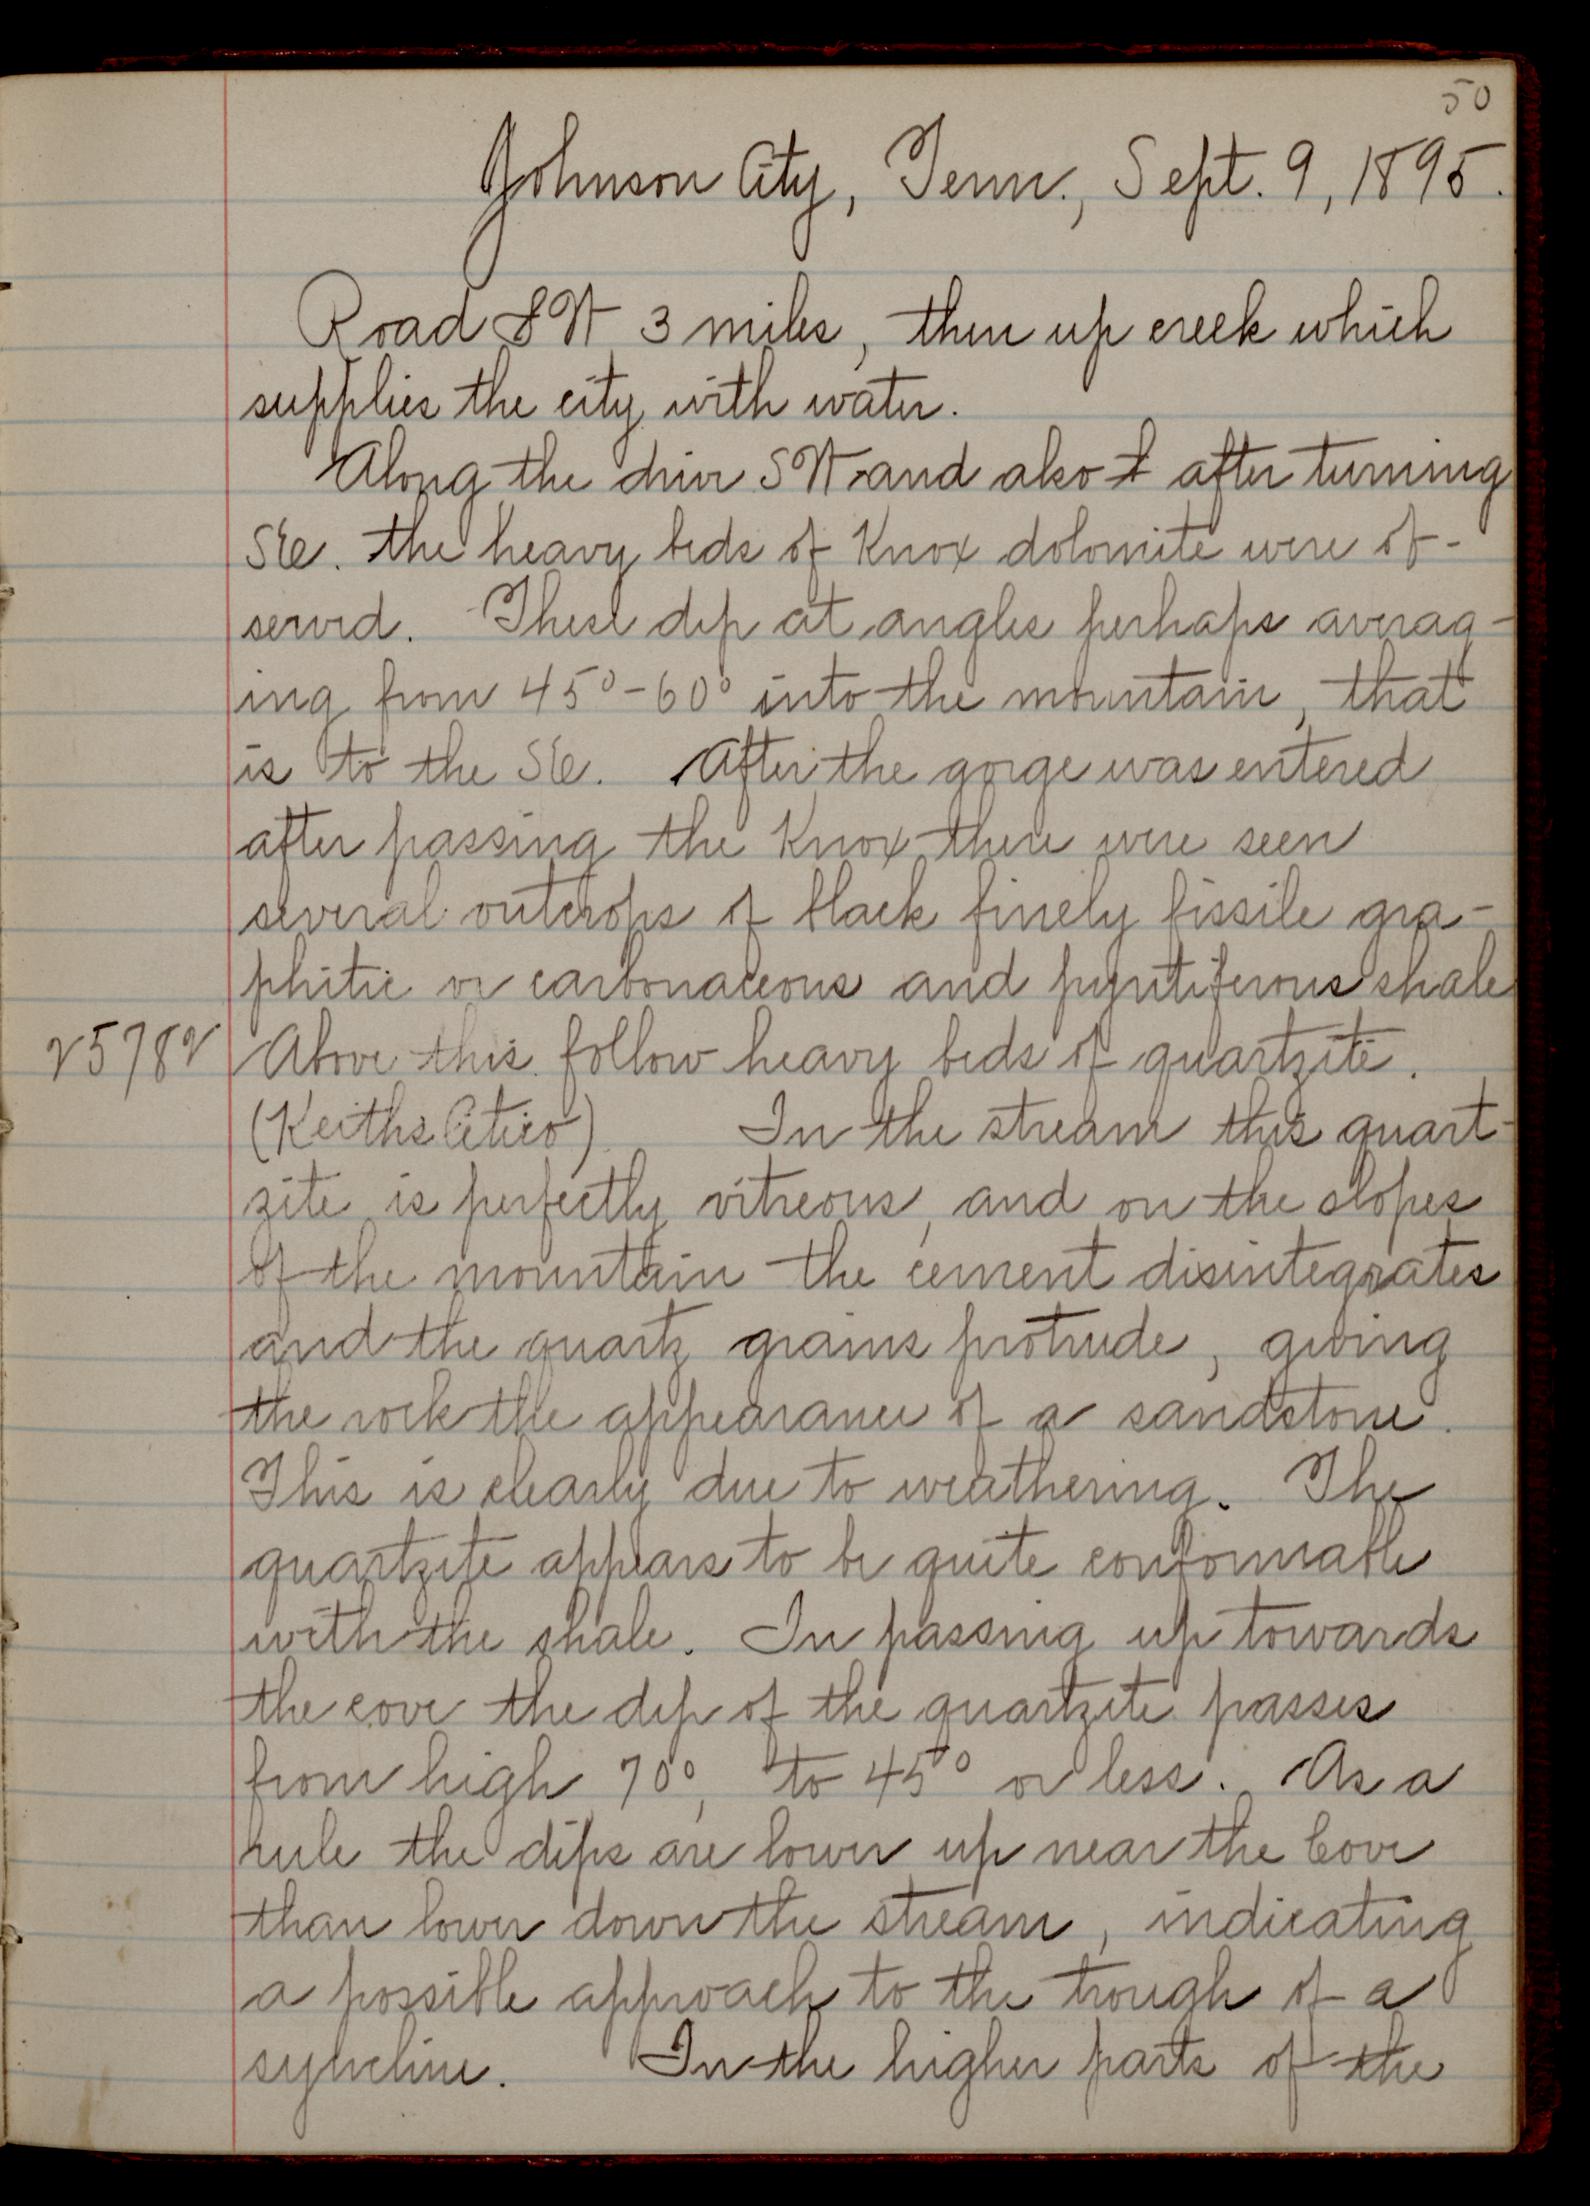 50
Johnson City, Tenn., Sept. 9, 1895.
Road SW 3 miles, then up creek which
supplies the city with water.
Along the drive SW and also after turning
SE. the heavy beds of Knox dolomite were ob-
served. These dip at angles perhaps averag-
ing from 45°-60° into the mountain, that
is to the SE. After the gorge was entered
after passing the Knox there were seen
several outcrops of black finely fissile gra-
phitic or carbonaceous and pyritiferous shale
25782 Above this follow heavy beds of quartzite.
(Keiths Citico) In the stream this quart-
zite is perfectly vitreous, and on the slopes
of the mountain the cement disintegrates
and the quartz grains protrude, giving
the rock the appearance of a sandstone.
This is clearly due to weathering. The
quartzite appears to be quite conformable
with the shale. In passing up towards
the cove the dip of the quartzite passes
from high 70°, to 45° or less. As a
rule the dips are lower up near the Cove
than lower down the stream, indicating
a possible approach to the trough of a
syncline. In the higher parts of the